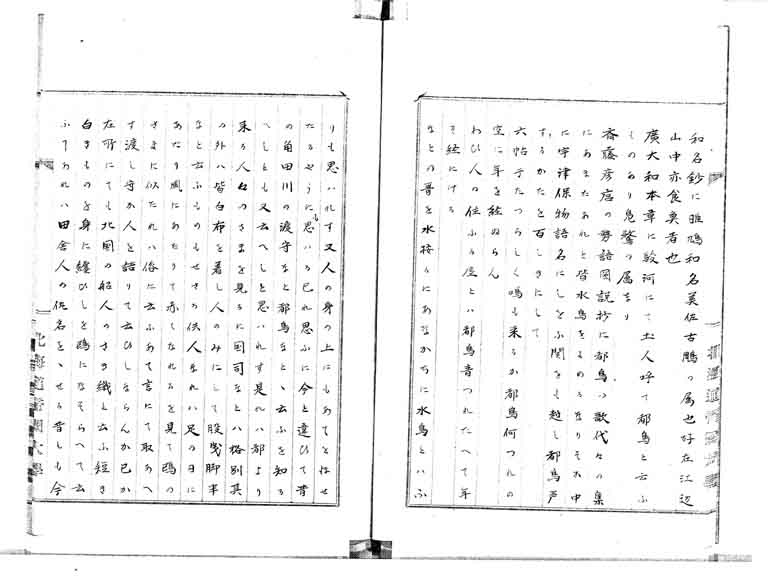 和名鈔に雎鳩和名美佐古鵰の属也好在江辺
山中亦食奥者也
廣大和本草に駿河にて土人呼て都鳥と云ふ
ものあり鳬鷺の属なり
斎藤彦麿の勢語図説抄に都鳥の歌代々の集
にあまたあれと皆水鳥をよめるなりその中
に宇津保物語名にしとふ関をも越し都鳥声
するかたを百しきにして
六帖子たつらしく鳴も来るか都鳥何つれの
空に年を経ぬらん
わひ人の住ふる宿と八都鳥音つれたへて年
そ経にける
なとの昔を水接るにあなかちに水鳥と八ふ
りも思八れす又人の身の上にもあてとはせ
たるやうにも思八る已れ思ふに今と違ひて昔
の角田川の渡守なと都鳥なとゝ云ふを知る
へしとも又云へしと思八れす是れ八都より
来る人々のさまを見るに国司なと八格別其
の外八皆白布を着し人のみにして股曳脚半
なと云ふものもせさる供人なれ八足の日に
あたり風にあたりて赤くなれるを見て鴎の
さまに似たれ八俗に云ふあて言にて取あへ
す渡し守か人と語りて云ひしならんか已か
在所にても北国の船人のさき織と云ふ短き
白きものを身に纏ひしを鴎になそらへて云
ふてあれ八田舎人の依名をゝせる昔しも今
北海道帝国大学